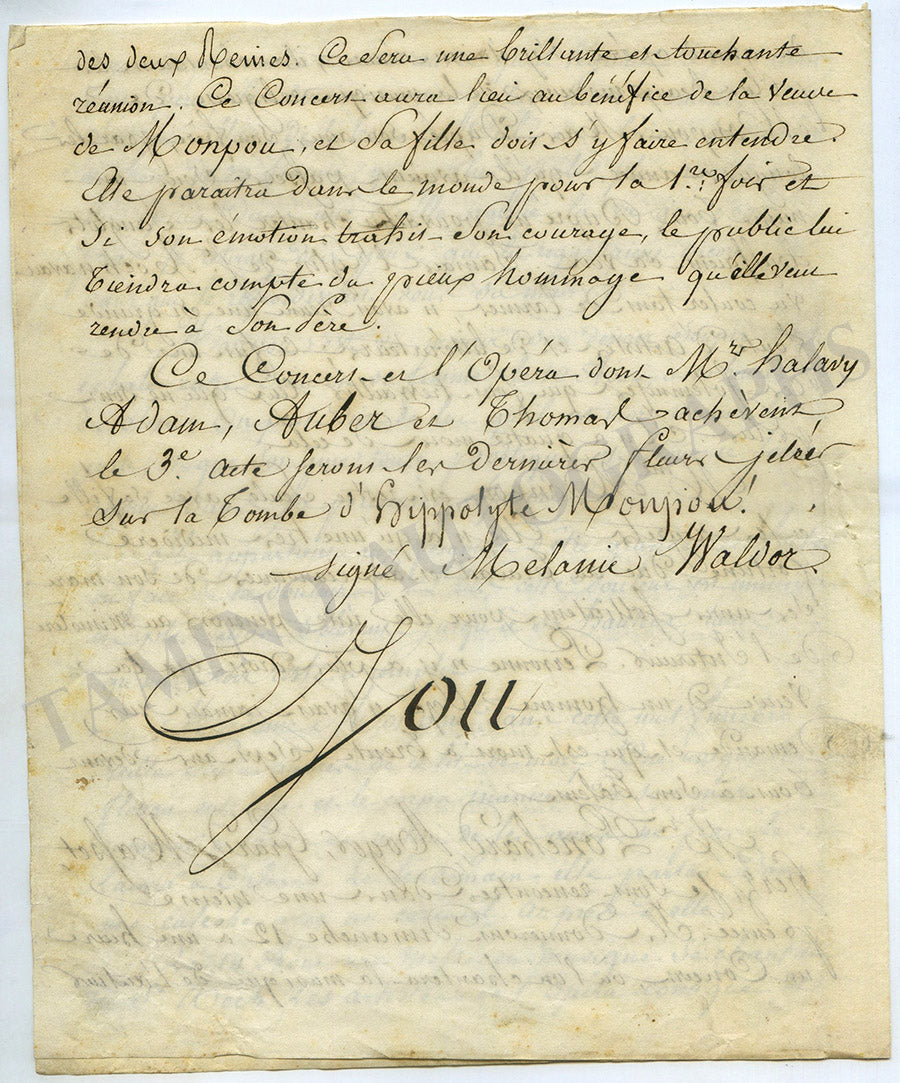 des deux Reines. Ce Sera une brillante et touchante
réunion. Ce Concert aura lieu au bénéfice de la veuve
de Monpou, et Sa fille doit s'y faire entendre.
Elle paraîtra dans le monde pour la 1.re fois et
Si son émotion trahit Son courage, le public lui
Tiendra compte du pieux hommage qu'elle veut
rendre à Son Père.
Ce Concert et l'Opéra dont Mr. halavy
Adam, Auber et Thomas achèvent
le 3.e acte seront les dernières fleurs jetées
Sur la Tombe d'hippolyte Monpou!
signé Melanie Waldor.
TAMINO AUTOGRAPHS